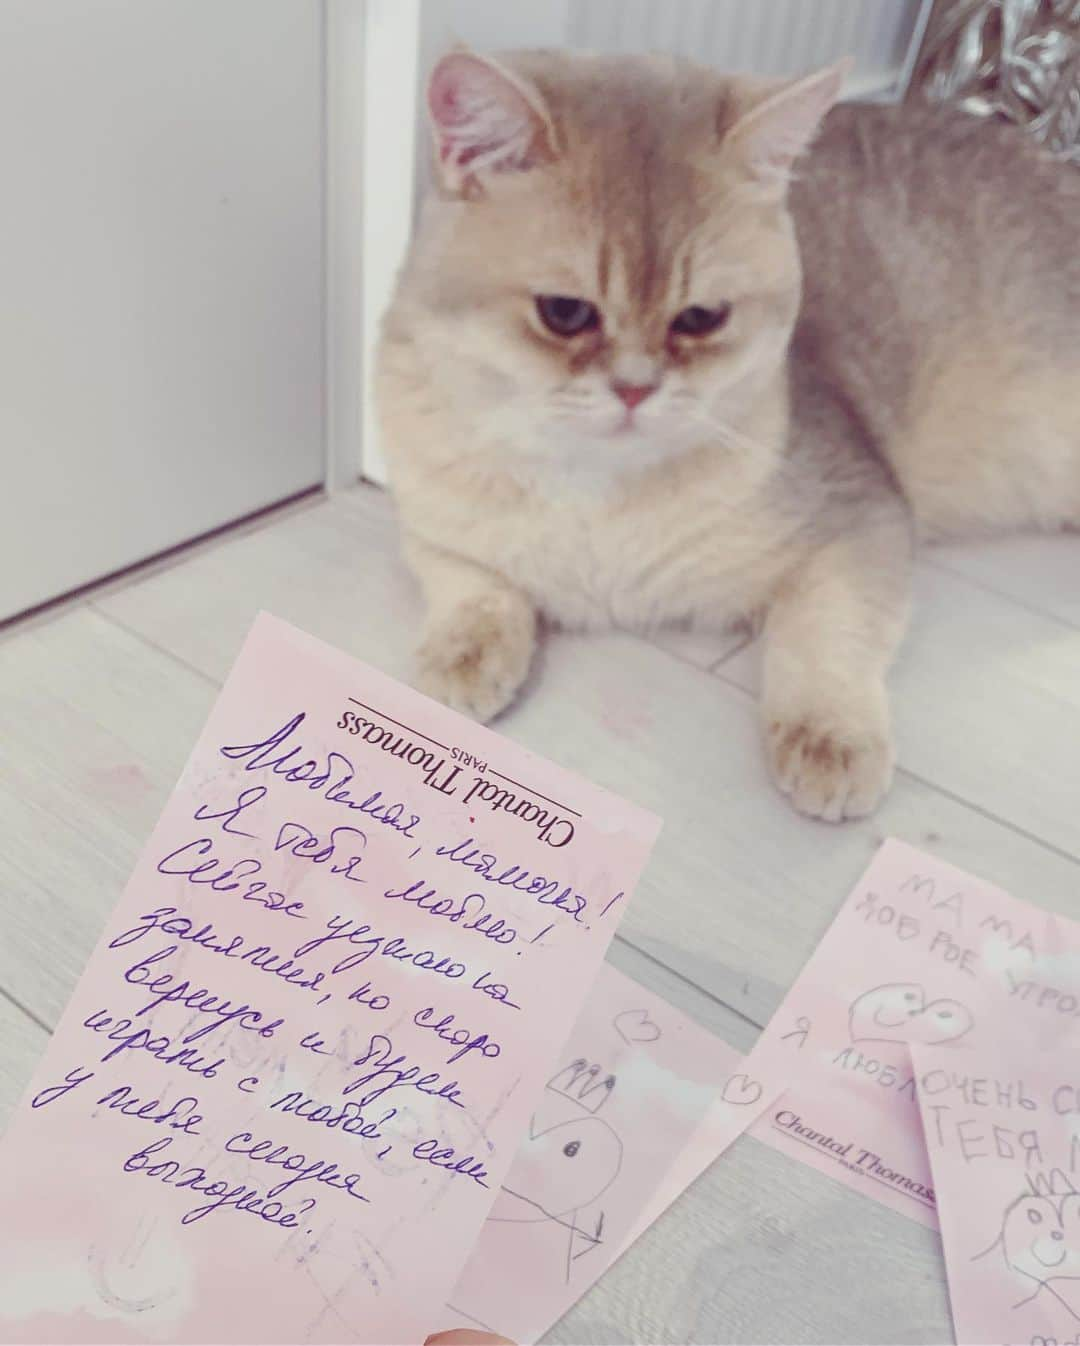 Chantal Thomass
PARIS
Любимая, мамочка!
Я тебя люблю!
Сейчас уезжаю на
занятия, но скоро
вернусь и будем
играть с тобой, если
у тебя сегодня
выходной.
МАМА
ДОБРОЕ УТРО
Я ЛЮБЛ
Chantal Thomass
PARIS
ОЧЕНЬ С
ТЕБЯ